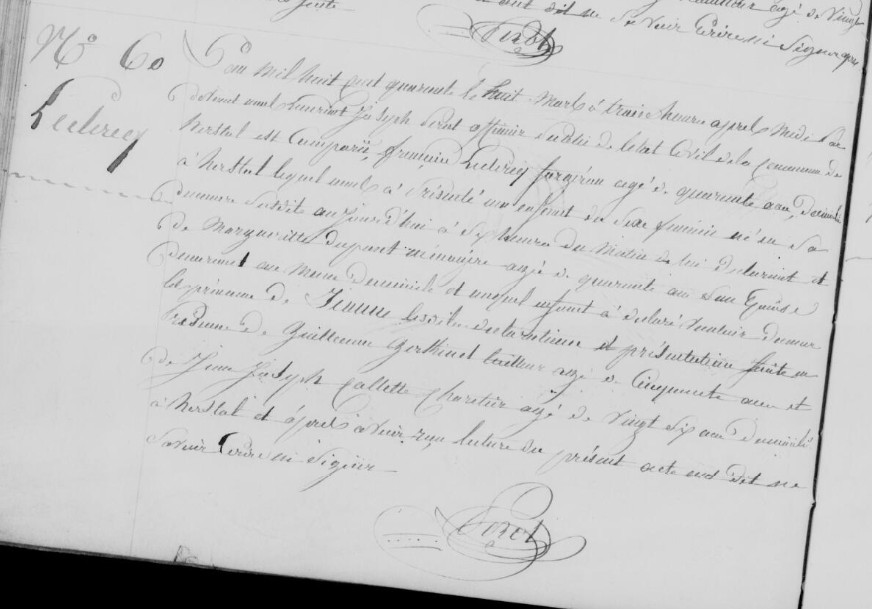 agé de vingt
ont dit ne savoir Ecrire ni Signer
Nº 60
Leclercq
L'an mil huit cent quarante le huit Mars à trois heures après Midi Par
devant nous Joseph officier Public de l'état Civil de la Commune de
herstal est Comparu françois Leclercq agé de quarante ans, Domicilié
à herstal lequel nous à Présenté un enfant du Sexe feminin né en Sa
demeure Susdit aujourd'hui à Sept heures du Matin de lui Declarant et
de Margueritte dupont ménagère agé de quarante ans Son Epouse
demeurant au meme Domicile et auquel enfant à declaré Vouloir donner
les prénoms de Jeanne lesdites declaration et présentation faite en
Presence de Guillaume agé de Cinquante ans et
de Jean Joseph Collette Charetier agé de vingt Six ans Domiciliés
à herstal et après avoir reçu lecture du présent acte ont Dit ne
Savoir Ecrire ni Signer